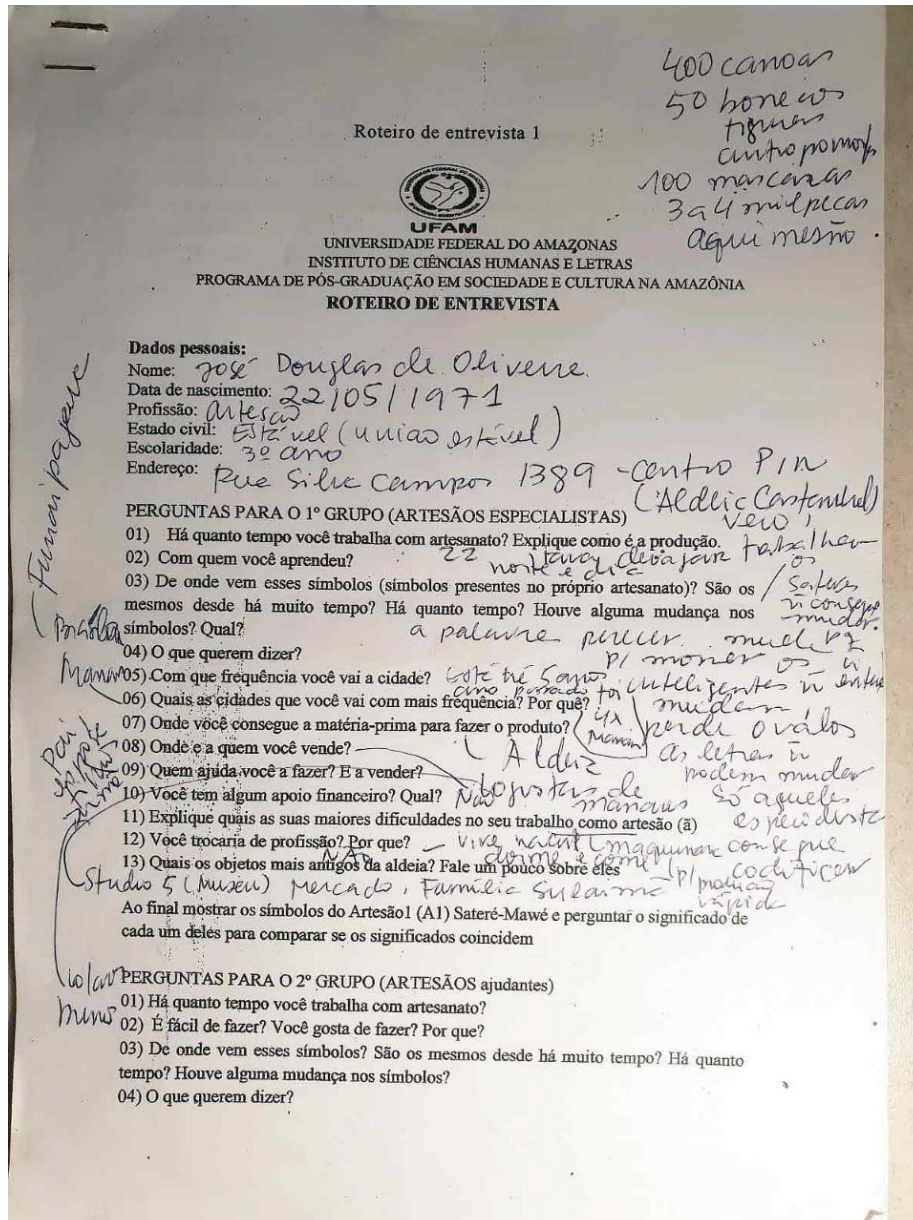 400 canoas
50 bonecos
figuras
antropomorf
100 mascaras
3 a 4 mil pecas
aqui mesmo.
Roteiro de entrevista 1
UFAM
UNIVERSIDADE FEDERAL DO AMAZONAS
INSTITUTO DE CIÊNCIAS HUMANAS E LETRAS
PROGRAMA DE PÓS-GRADUAÇÃO EM SOCIEDADE E CULTURA NA AMAZÔNIA
ROTEIRO DE ENTREVISTA
Dados pessoais:
Nome: José Douglas de Oliveira
Data de nascimento: 22/05/1971
Profissão: Artesão
Estado civil: Estável (união estável)
Escolaridade: 3º ano
Endereço: Rua Silva Campos 1389 - centro PIN
(Aldeia Castanhal)
PERGUNTAS PARA O 1º GRUPO (ARTESÃOS ESPECIALISTAS)
01) Há quanto tempo você trabalha com artesanato? Explique como é a produção.
02) Com quem você aprendeu? 22 noite e dia trabalhar
03) De onde vem esses símbolos (símbolos presentes no próprio artesanato)? São os
mesmos desde há muito tempo? Há quanto tempo? Houve alguma mudança nos
símbolos? Qual? a palavra
04) O que querem dizer? p/
05) Com que frequência você vai a cidade? 5 anos
06) Quais as cidades que você vai com mais frequência? Por quê? ano passado foi
inteligentes
mudam,
07) Onde você consegue a matéria-prima para fazer o produto? 4x Manaus
perde o valor
08) Onde e a quem você vende? Aldeia
as letras ñ
podem mudar
09) Quem ajuda você a fazer? E a vender?
10) Você tem algum apoio financeiro? Qual? Não Lojistas de manaus
só aqueles
especialista
11) Explique quais as suas maiores dificuldades no seu trabalho como artesão (ã)
12) Você trocaria de profissão? Por que? Não vive maquinar consegue
13) Quais os objetos mais antigos da aldeia? Fale um pouco sobre eles dorme e come
codificar
Studio 5 (Museu) Mercado, Família p/ produção rápida
Ao final mostrar os símbolos do Artesão1 (A1) Sateré-Mawé e perguntar o significado de
cada um deles para comparar se os significados coincidem
PERGUNTAS PARA O 2º GRUPO (ARTESÃOS ajudantes)
01) Há quanto tempo você trabalha com artesanato?
02) É fácil de fazer? Você gosta de fazer? Por que?
03) De onde vem esses símbolos? São os mesmos desde há muito tempo? Há quanto
tempo? Houve alguma mudança nos símbolos?
04) O que querem dizer?
Brasília
Manaus
Pai
esposa